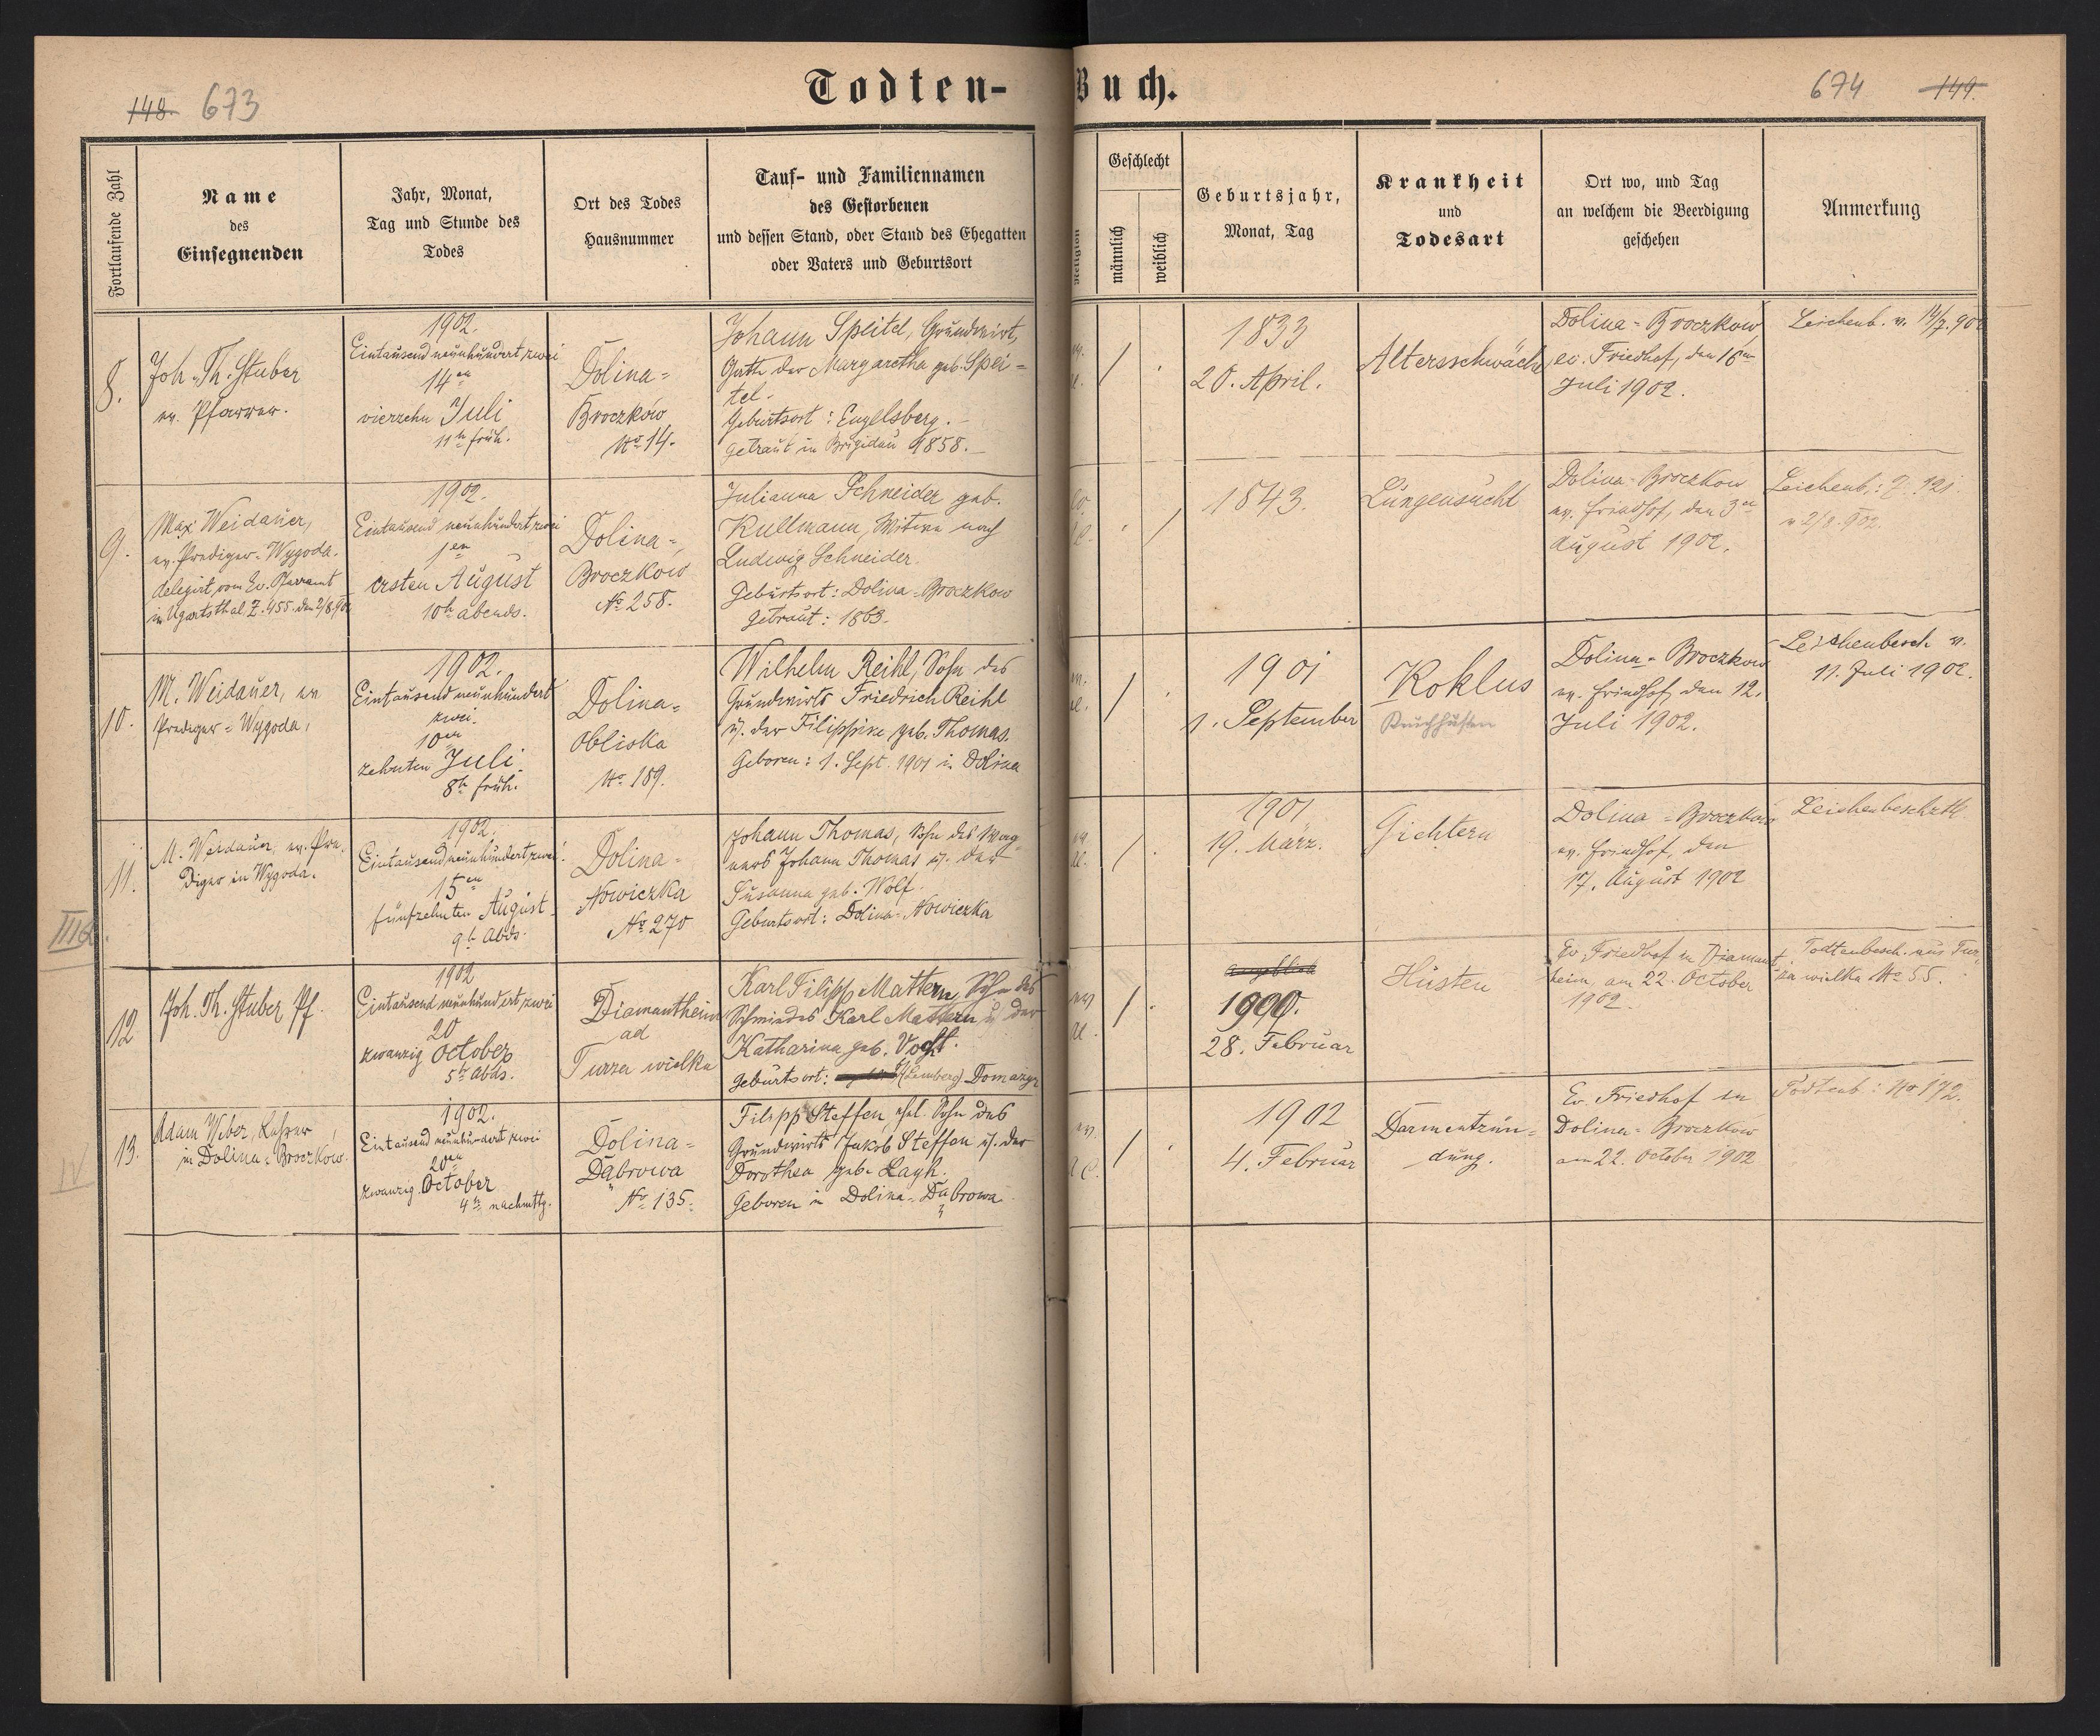 148. 673
Todten-Buch.
674 149.
Fortlaufende Zahl
Name
des
Einsegnenden
Jahr, Monat,
Tag und Stunde des
Todes
Ort des Todes
Hausnummer
Tauf- und Familiennamen
des Gestorbenen
und dessen Stand, oder Stand des Ehegatten
oder Vaters und Geburtsort
Religion
Geschlecht
männlich
weiblich
Geburtsjahr,
Monat, Tag
Krankheit
und
Todesart
Ort wo, und Tag
an welchem die Beerdigung
geschehen
Anmerkung
8.
Joh. Th. Stuber
ev. Pfarrer.
1902.
Eintausend neunhundert zwei
14en
vierzehn Juli
11h früh.
Dolina=
Broczków
No 14.
Johann Speitel, Grundwirt,
Gatte der Margaretha geb. Spei=
tel.
Geburtsort: Engelsberg.
getraut in Brigidau 1858.
1833
20. April.
Altersschwäche
Dolina=Broczków
ev. Friedhof, den 16en
Juli 1902.
Leichenb. v. 14/7. 902
9.
Max Weidauer,
ev. Prediger=Wygoda.
delegirt vom Ev. Pfarramt
in Ugartsthal Z. 455. den 2/8 902
1902.
Eintausend neunhundert zwei
1en
ersten August
10h abends.
Dolina=
Broczkow
No 258.
Julianna Schneider geb.
Kullmann, Witwe nach
Ludwig Schneider.
Geburtsort: Dolina=Broczkow
getraut: 1863.
1843.
Lungensucht
Dolina=Broczkow
ev. Friedhof, den 3en
August 1902.
Leichenb.: Z. 121
v 2/8. 902.
10.
M. Weidauer, ev
Prediger=Wygoda,
1902.
Eintausend neunhundert
zwei.
10en
zehnten Juli
8h früh.
Dolina=
Obliska
No 189.
Wilhelm Reihl, Sohn des
Grundwirts Friedrich Reihl
u. der Filippine geb. Thomas.
Geboren: 1. Sept. 1901 in Dolina
1901
1. September
Koklus
Keuchhusten
Dolina=Broczkow
ev. Friedhof, den 12.
Juli 1902.
Leichenbesch v.
11. Juli 1902.
11.
M. Weidauer, ev. Pre=
diger in Wygoda.
1902.
Eintausend neunhundert zwei
15en
fünfzehnten August
9h Abds.
Dolina=
Nowiczka
No 270
Johann Thomas, Sohn des Wag=
ners Johann Thomas u. der
Susanna geb. Wolf.
Geburtsort: Dolina=Nowiczka
1901
19. März.
Gichtern
Dolina=Broczków
ev. Friedhof, den
17. August 1902
Leichenbeschttl
12
Joh. Th. Stuber Pf.
1902
Eintausend neunhundert zwei
20
zwanzig October
5h Abds.
Diamantheim
ad
Turza wielka
Karl Filipp Mattern, Sohn des
Schmiedes Karl Mattern u. der
Katharina geb. Vogt.
Geburtsort: (Lemberg) Domazyr
1900.
28. Februar
Husten
Ev. Friedhof in Diamant
heim, am 22. October
1902.
Todtenbesch. aus Tur
za wielka No 55.
13.
Adam Weber, Lehrer
in Dolina=Broczkow.
1902.
Eintausend neunhundert zwei
20en
zwanzig October
4h nachmttg.
Dolina=
Dąbrowa
No 135.
Filipp Steffen, ehel. Sohn des
Grundwirts Jakob Steffen u. der
Dorothea geb. Layh.
Geboren in Dolina=Dąbrowa
1902
4. Februar
Darmentzün=
dung.
Ev. Friedhof in
Dolina=Broczkow
am 22. October 1902
Todtenb: No 172.
IV